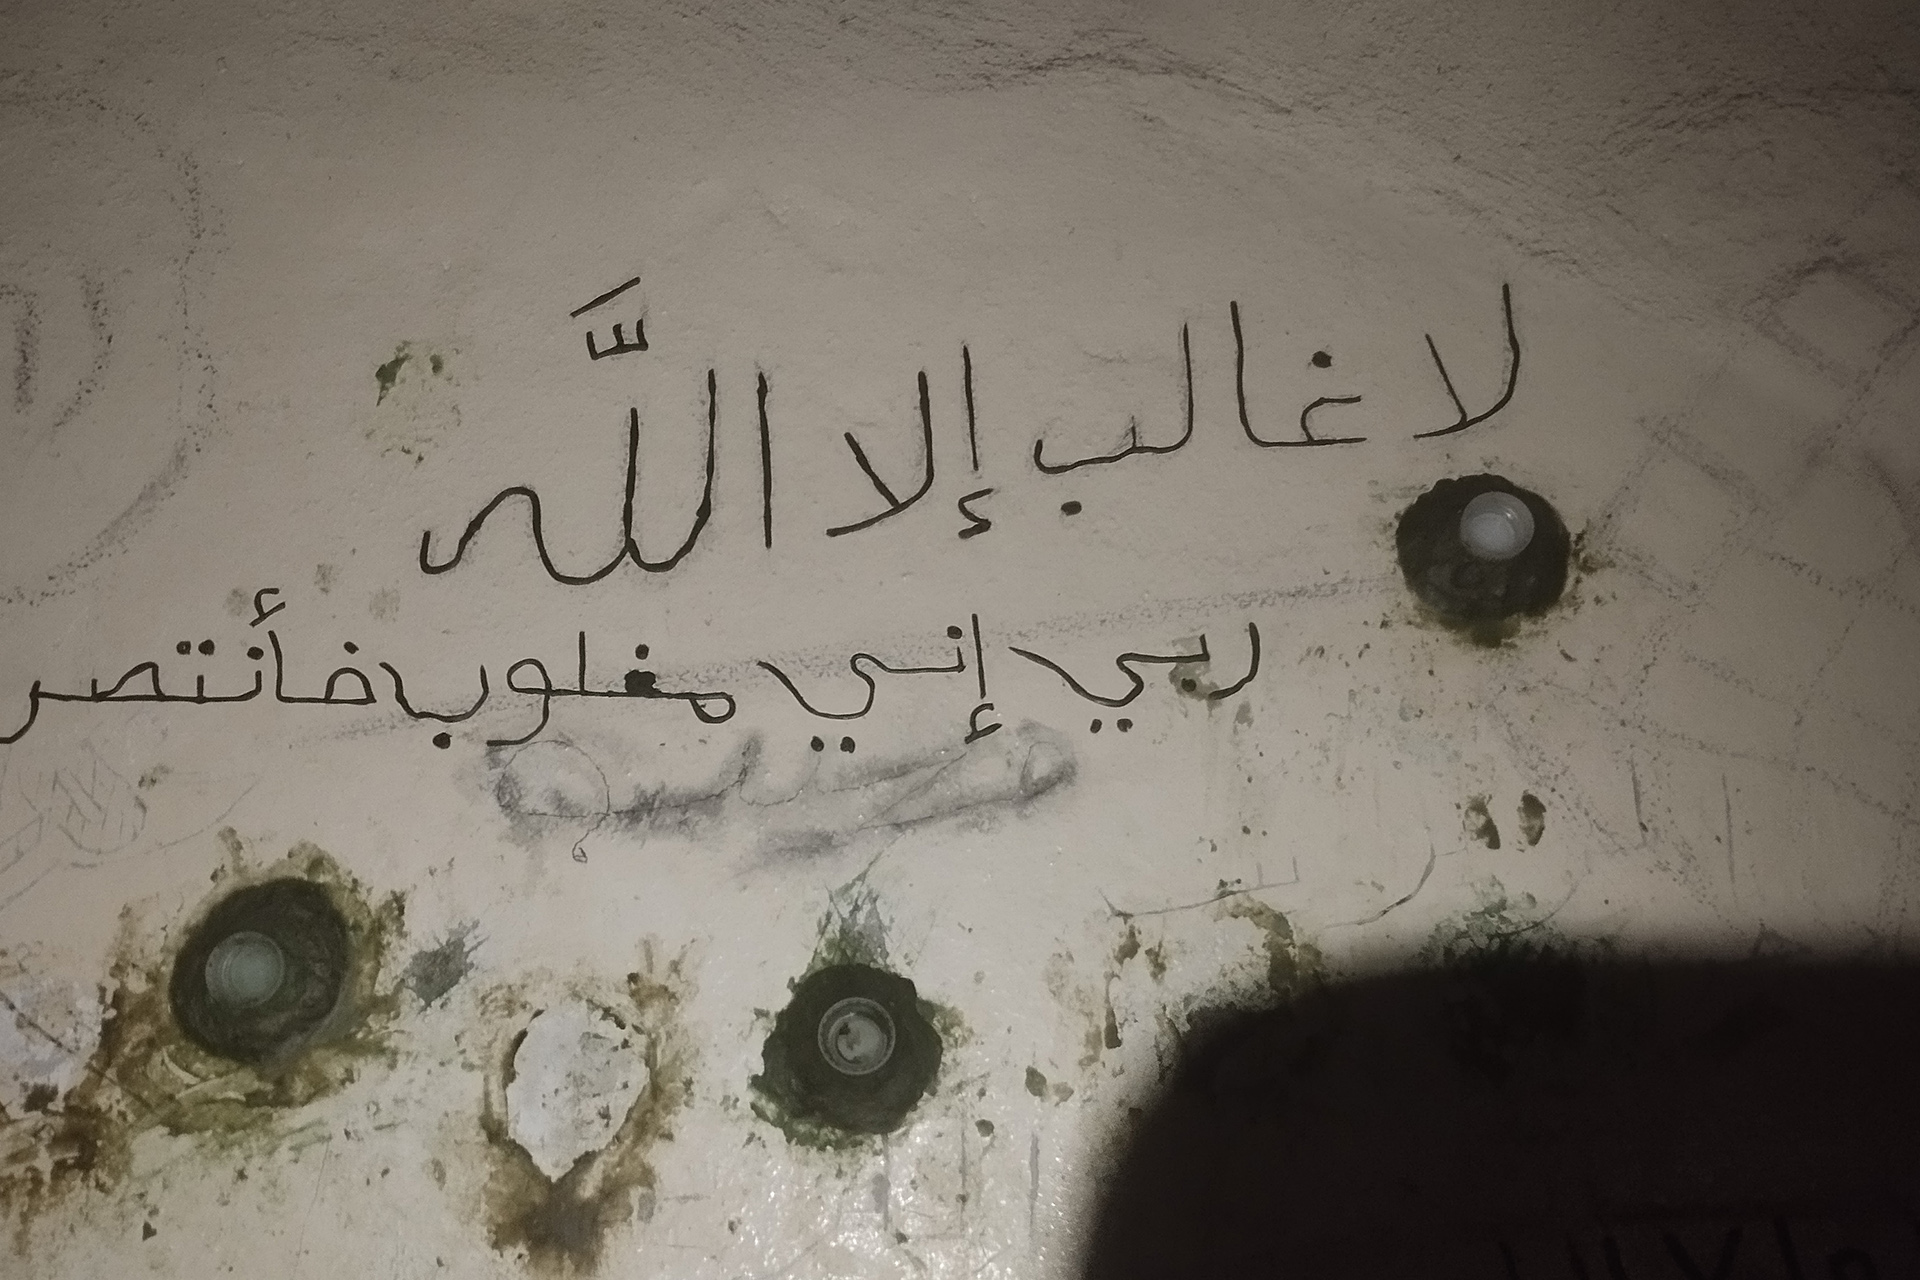 لا غالب إلا اللّه
ربي إني مغلوب فأنتصر